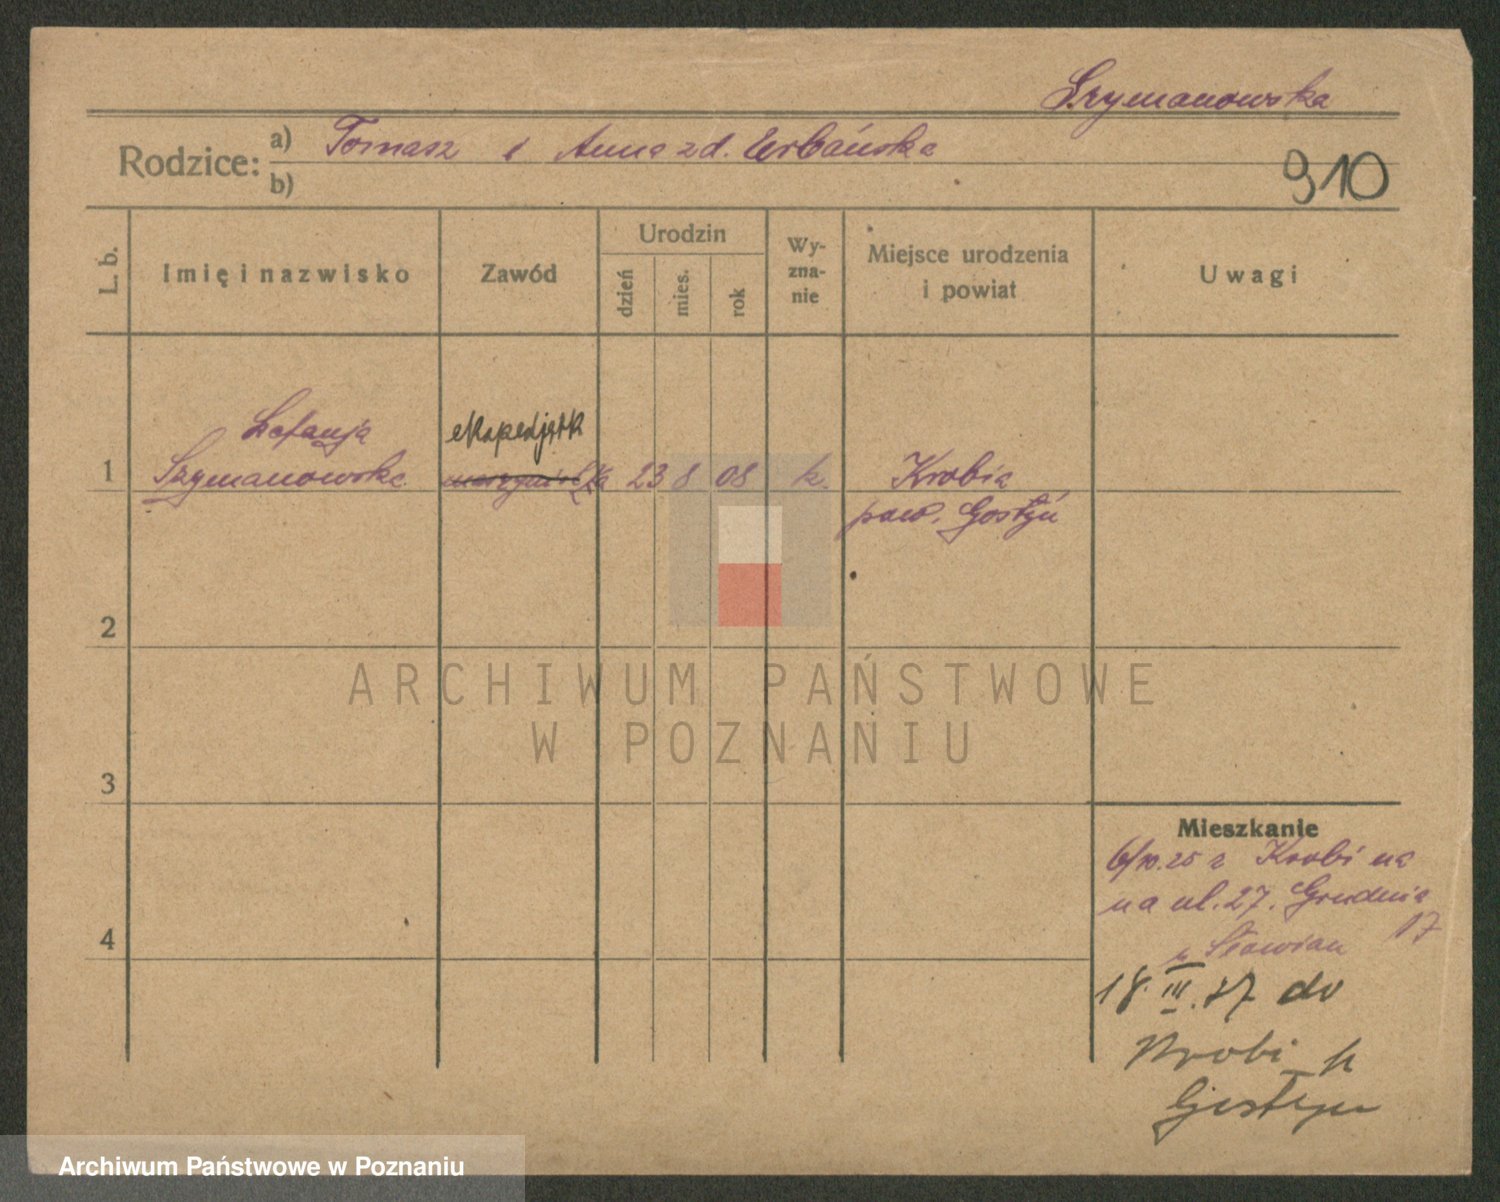 Szymanowska
Rodzice: a) Tomasz i Anna zd. Urbańska
b)
910
L. b.
Imię i nazwisko
Zawód
Urodzin
dzień
mies.
rok
Wy-
zna-
nie
Miejsce urodzenia
i powiat
Uwagi
Stefanja
ekspedjetk
1 Szymanowska ka 23 8 08 k. Krobia
pow. Gostyń
2
ARCHIWUM PAŃSTWOWE
W POZNANIU
3
Mieszkanie
6/10.25 z Krobi na
na ul. 27. Grudnia
17
4
u Słowian
18.III.27 do
Krobi p
Gostyn
Archiwum Państwowe w Poznaniu